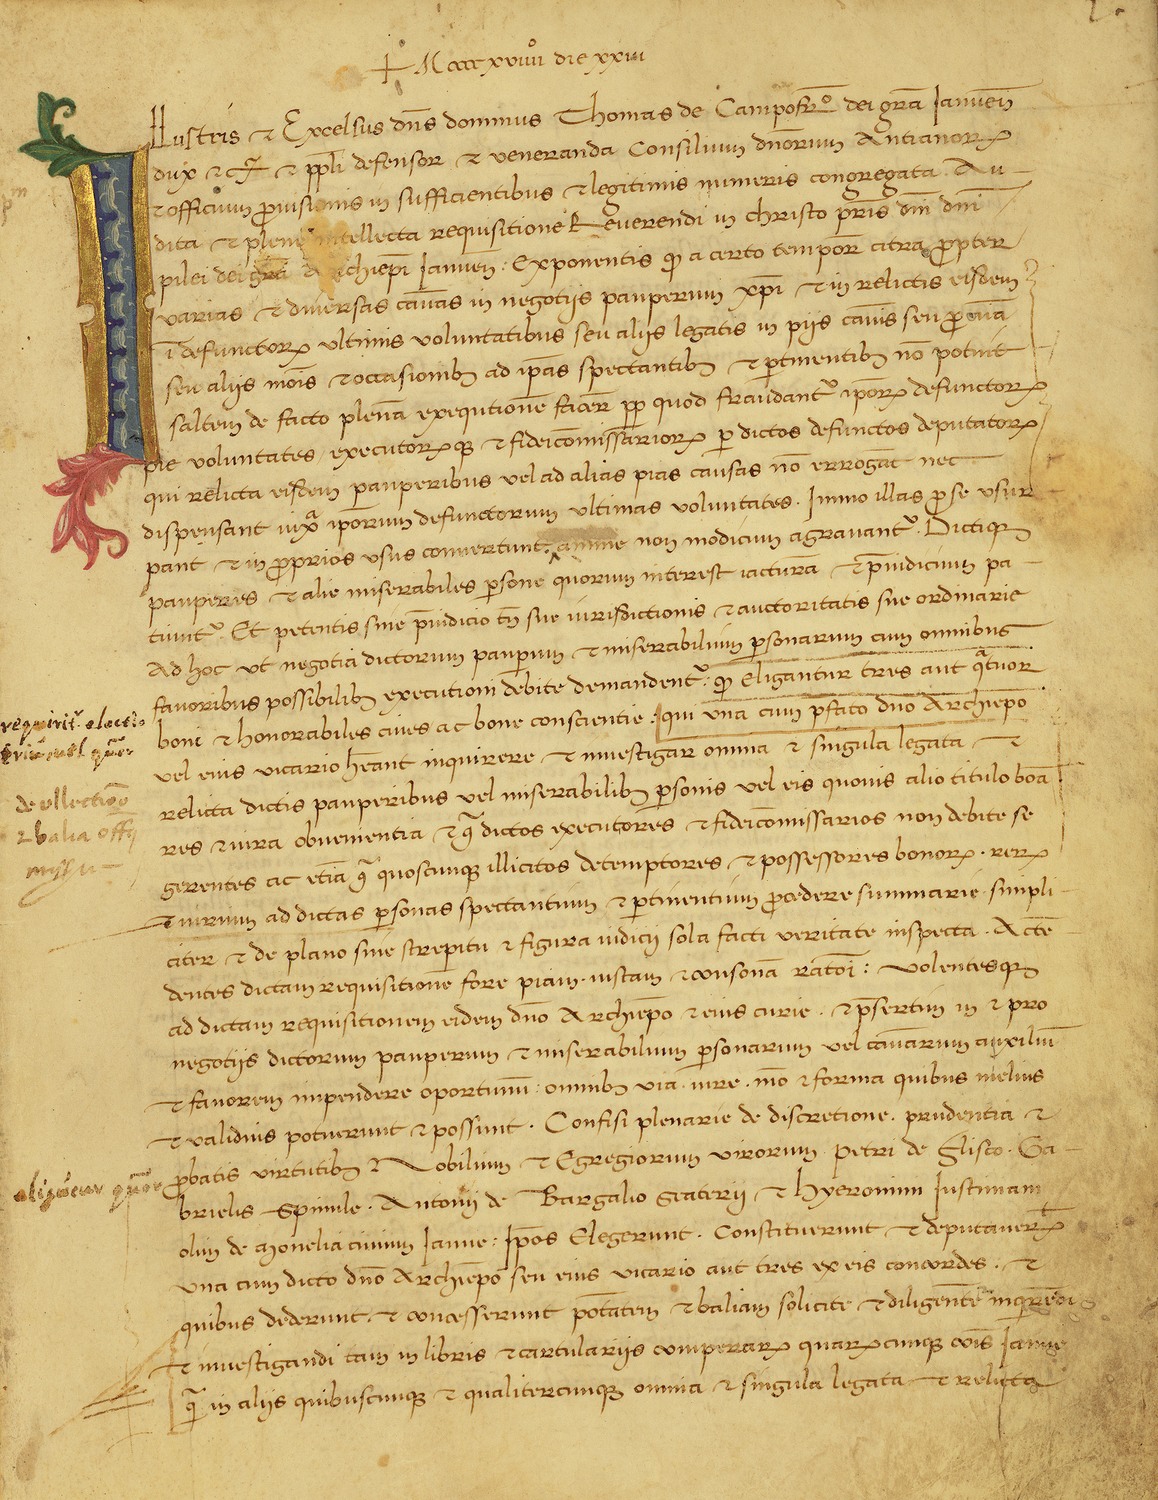 ✝ Mcccc xviiii die xxiii
Illustris et Excelsus dns dominus Thomas de Campofr̄º dei gra Ianuen̄
dux etc̄ et ppli defensor et veneranda Consilium dnorum Antianorꝝ
et officium prouisionis in sufficientibus et legitimis numeris congregata . Au-
dita et plene intellecta requisitione Reuerendi in christo pris dni dni
pilei dei gra Archiepi Ianuen . Exponentis ꝙ a certo tempore citra propter
varias et diuersas causas in negotijs pauperum xpi et in relictis eisdem
i defunctorꝝ vltimis voluntatibus seu aliis legatis in piis causis seu
seu aliis mois et occasionibꝫ ad ipas spectantibꝫ et ptinentibꝫ no potuit
saltem de facto plenā exequtionē facer pp quod fraudantr ipoꝝ defunctorꝝ
pie voluntates executorꝝqꝫ et fideicomissariorꝝ p dictos defunctos deputatorꝝ
qui relicta eisdem pauperibus vel ad alias pias causas no errogāt nec
dispensant iuxa ipōrum defunctorum vltimas voluntates . Immo illas pro se vsur
pant et in proprios vsus conuertunt . anime non modicum agrauantr . Dictiqꝫ
pauperes et alie miserabiles psone quorum interest iacturā et piudicium pa-
tiuntr . Et petentis sine piudicio tn sue iurisdictionis et auctoritatis sue ordinarie
Ad hoc vt negotia dictorum pauperum et miserabilium personarum cum omnibus
fauoribus possibilibꝫ executioni debite demandentr : ꝙ Eligantur tres aut qatuor
boni et honorabiles ciues ac bone conscientie : qui vna cum pfato dno Archiepo
vel eius vicario heant inquirere et inuestigar omnia et singula legata et
relicta dictis pauperibus vel miserabilibꝫ personis vel eis quouis alio titulo boa
res et iura obuenientia et qa dictos executores et fideicomissarios non debite se
gerentes ac etiā qa quoscunqꝫ illicitos detemptores et possessores bonorꝝ . rerꝝ
et iurium ad dictas psonas spectantium et ptinentium procedere summarie . simpli-
citer et de plano sine strepitu et figura iudicij sola facti veritate inspecta . Actē-
dentes dictam requisitionē fore piam . iustam et consonā ratoi : Volentesqꝫ
ad dictam requisitionem eidem dno Archiepo et eius curie . et psertim in et pro
negotijs dictorum pauperum et miserabilium personarum vel causarum auxiliu
et fauorem impendere oportunum : omnibꝫ via . iure . mo et forma quibus melius
et validius potuerunt et possunt . Confisi plenarie de discretione . prudentia et
probatis virtutibꝫ Nobilium et Egregiorum virorum Petri de flisco . Ga-
brielis Spinule . Antonij de Bargalio sataerij et Hyeronimi Iustiniani
olim de monelia ciuium Ianue : Ipos Elegerunt . Constituerunt et deputauerꝝt
vna cum dicto dno Archiepo seu eius vicario aut tres ex eis concordes . et
quibus dederunt et concesserunt potatem et baliam solicite et diligente inqrēdi
et inuestigandi tam in libris et cartulariis comperarꝝ quarꝝcunqꝫ cois Ianue
qa in aliis quibuscunqꝫ et qualitercunqꝫ omnia et singula legata et relicta
requiritr electio
triu uel quor
de ellectione
et balia offij
eligūtur quor